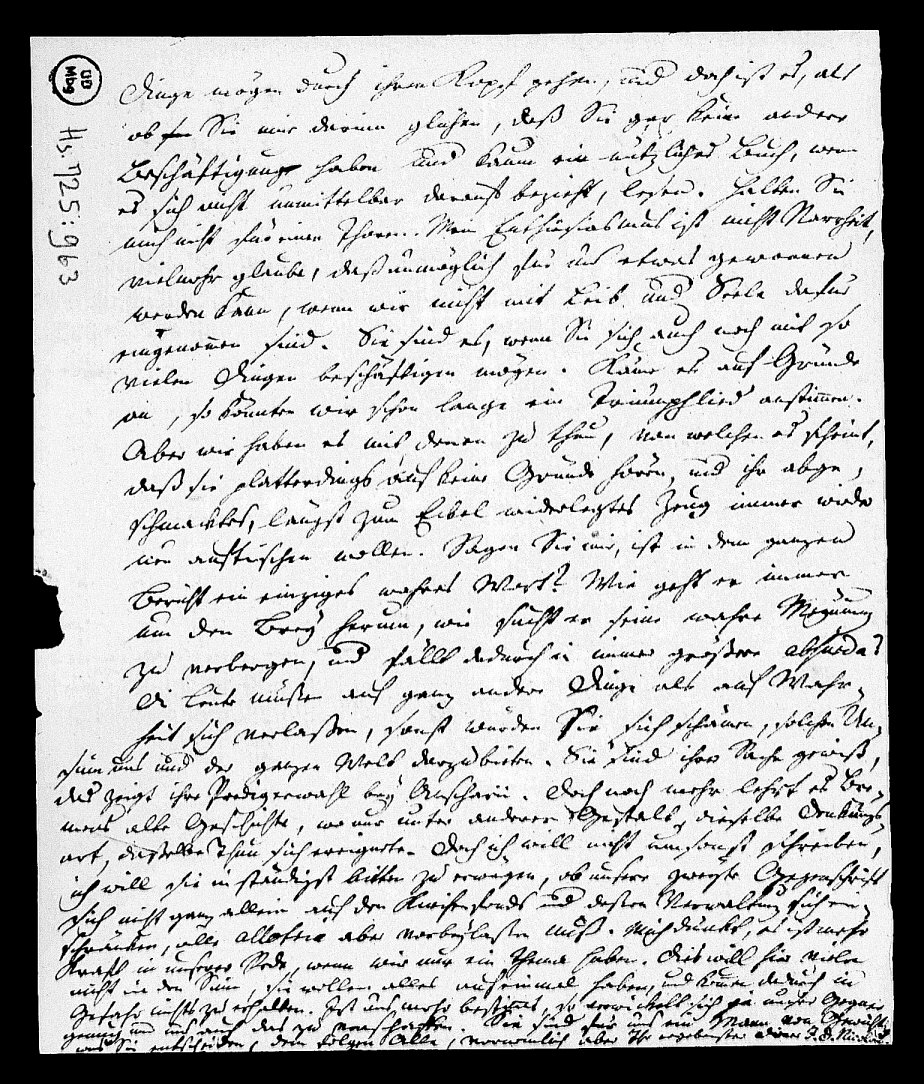 UB
Mbg
Hs. 725:963
Dinge mögen durch ihren Kopf gehen, und doch ist es, als
ob Sie mir darinn glichen, daß Sie gar keine andere
Beschäftigung haben und kaum ein nützliches Buch, wenn
es sich nicht unmittelbar darauf bezieht, lesen. Halten Sie
mich nicht für einen Thoren. Mein Enthusiasmus ist nicht Narrheit,
vielmehr glaube, daß unmöglich für uns etwas gewonnen
werden kann, wenn wir nicht mit Leib und Seele dafür
eingenomen sind. Sie sind es, wenn Sie sich auch noch mit so
vielen Dingen beschäftigen mögen. Käme es auf Gründe
an, so könnten wir schon lange ein Triumphlied anstimmen.
Aber wir haben es mit denen zu thun, von welchen es scheint,
daß sie platterdings auf keine Gründe hören, und ihr abge-
schmacktes, längst zum Eckel widerlegtes Zeug immer wieder
neu auftischen wollen. Sagen Sie mir, ist in dem ganzen
Bericht ein einziges wahres Wort? Wie geht er immer
um den Brey herum, wie sucht er seine wahre Meynung
zu verbergen, und fällt dadurch in immer größere absurda?
Die Leute müssen auf ganz andere Dinge als auf Wahr-
heit sich verlaßen, sonst würden Sie sich schämen, solchen Un-
sinn uns und der ganzen Welt darzubieten. Sie sind ihrer Sache gewiß,
das zeigt ihre Predigerwahl bey Anscharii. Doch noch mehr lehrt es Bre-
mens alte Geschichte, wo nur unter anderer Gestalt dieselbe Denkungs-
art, dasselbe Thun sich ereignete. Doch ich will nicht umsonst schreiben,
ich will Sie inständigst bitten zu erwägen, ob unsere zweyte Gegenschrift
sich nicht ganz allein auf den Kirchenfonds und dessen Verwaltung ein-
schränken, alle allotria aber vorbeylassen muß. Mich dünkt, es ist mehr
Kraft in unserer Rede, wenn wir nur ein Thema haben. Dies will hier vielen
nicht in den Sinn, sie wollen alles auf einmal haben, und kommen dadurch in
Gefahr nichts zu erhalten. Ist uns mehr bestimmt, so entwickelt sich unser Gegner
genug und uns auch das zu verschaffen. Sie sind für uns ein Mann von Gewicht
was Sie entscheiden, dem folgen Alle, vornemlich aber Ihr ergebenster Diener